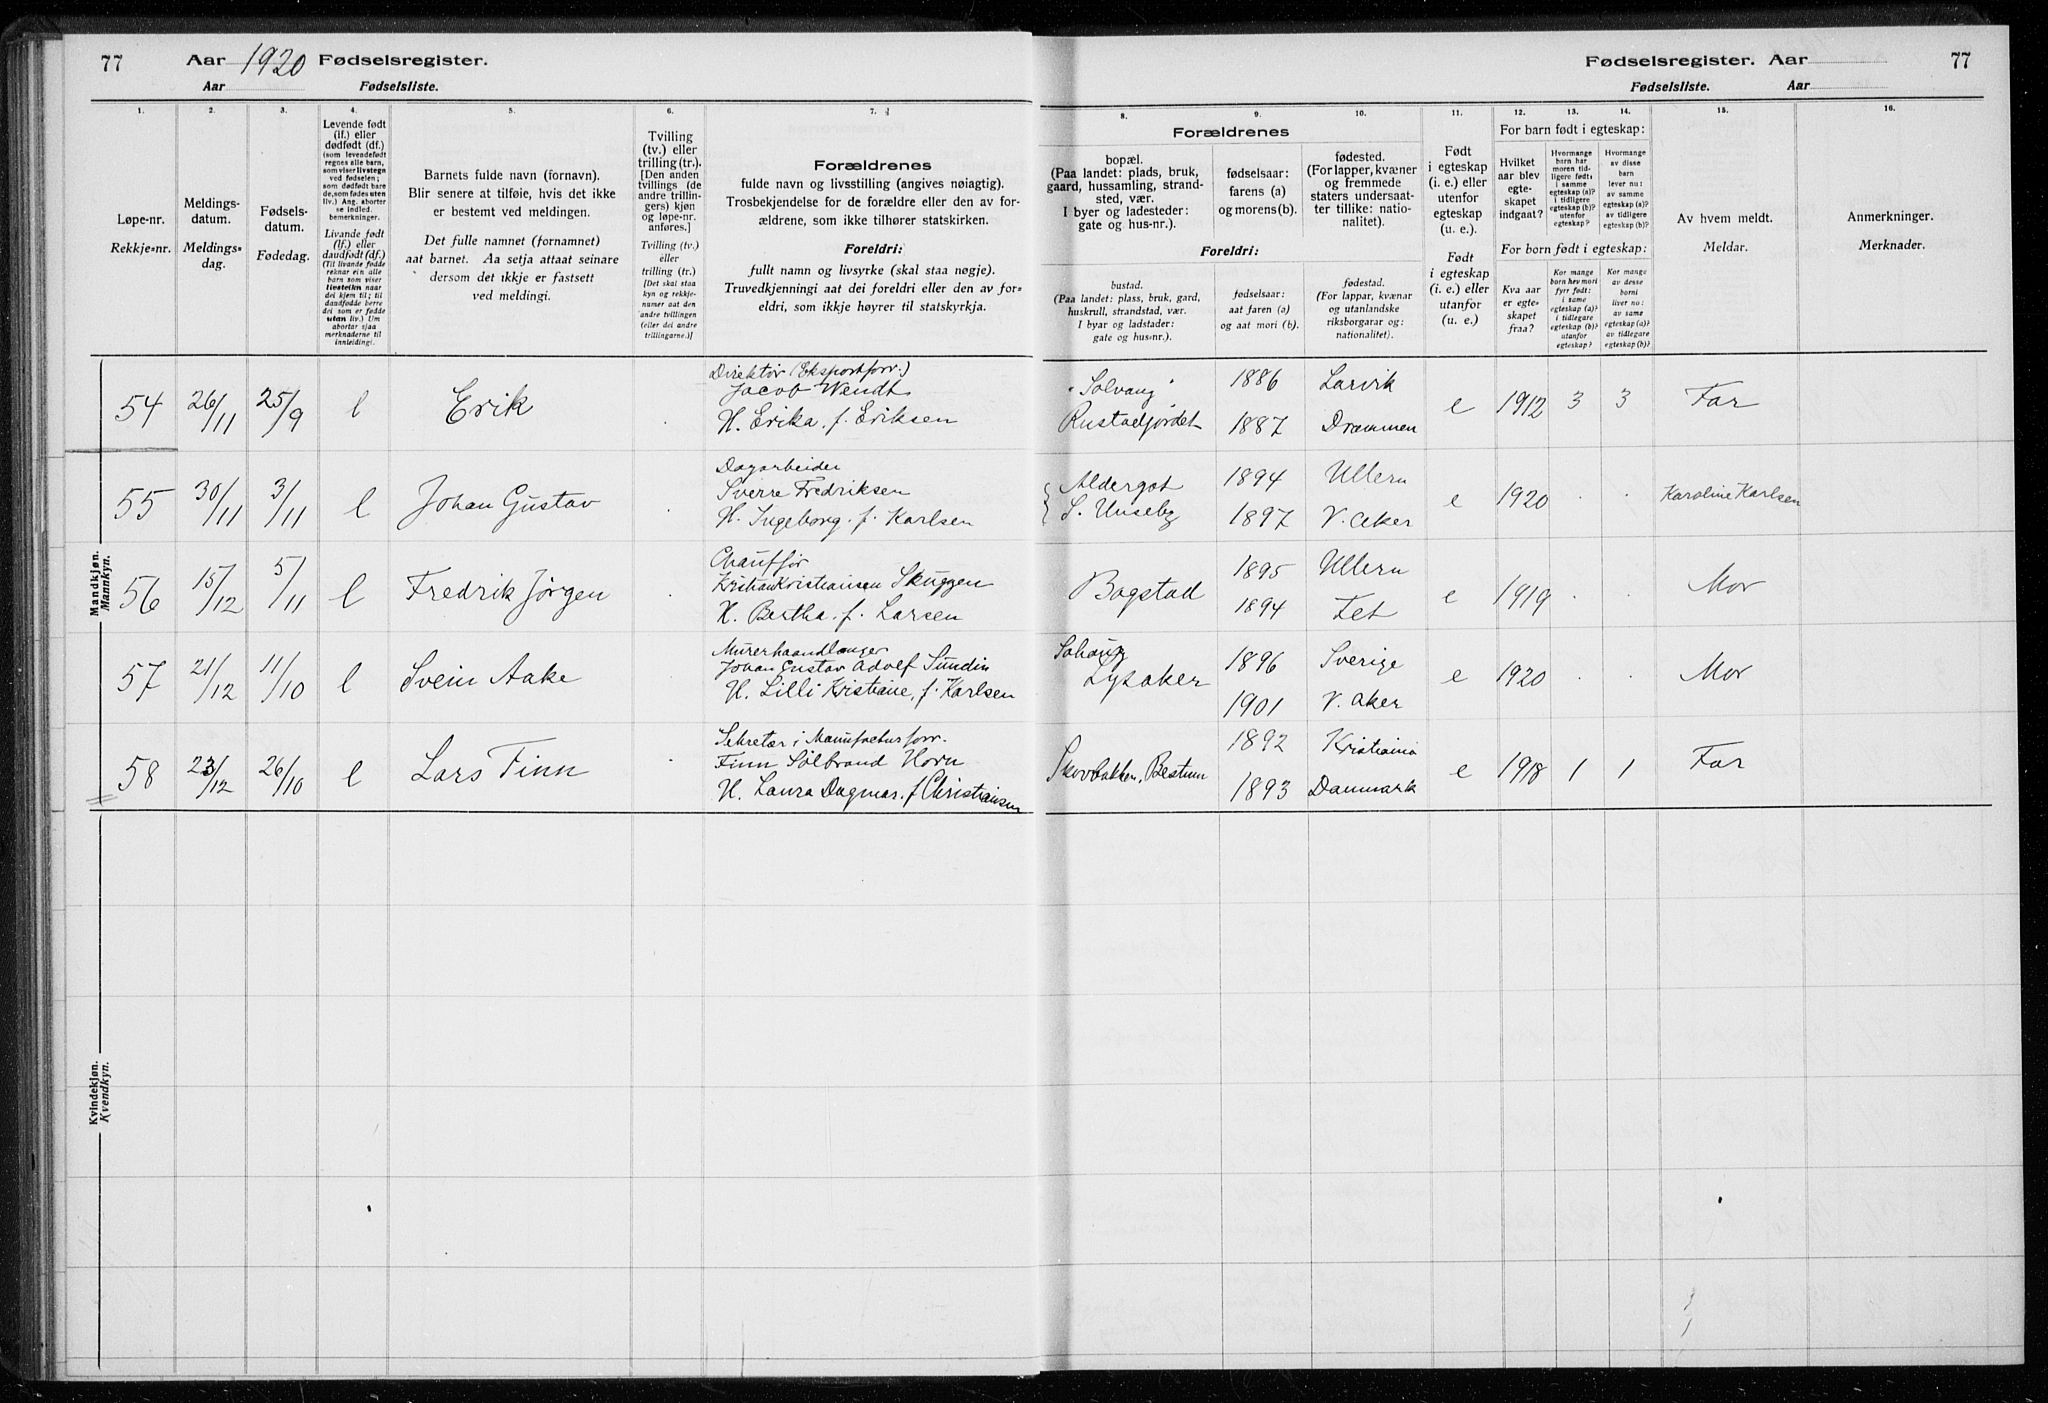 77 Aar 1920 Fødselsregister.
Aar Fødselsliste.
Fødselsregister. Aar 77
Fødselsliste. Aar
1. 2. 3. 4. 5. 6. 7. 8. 9. 10. 11. 12. 13. 14. 15. 16.
Løpe-nr.
Rekkje-nr.
Meldings-
datum.
Meldings-
dag.
Fødsels-
datum.
Fødedag.
Levende født
(lf.) eller
dødfødt (df.)
(som levendefødt
regnes alle barn,
som viser livstegn
ved fødselen;
som dødfødt bare
de, som fødes uten
liv.) Ang. aborter
se indled.
bemerkninger.
Livande født
(lf.) eller
daudfødt (df.)
(Til livande fødde
reknar ein alle
barn som viser
livsteikn naar
dei kjem til; til
daudfødde berre
dei som er fødde
utan liv.) Um
abortar sjaa
merknaderne til
innleidingi.
Barnets fulde navn (fornavn).
Blir senere at tilføie, hvis det ikke
er bestemt ved meldingen.
Det fulle namnet (fornamnet)
aat barnet. Aa setja attaat seinare
dersom det ikkje er fastsett
ved meldingi.
Tvilling
(tv.) eller
trilling (tr.).
[Den anden
tvillings (de
andre trillin-
gers) kjøn
og løpe-nr.
anføres.]
Tvilling (tv.)
eller
trilling (tr.)
[Det skal staa
kyn og rekkje-
numer aat den
andre tvillingen
(eller dei andre
trillingarne.)]
Forældrenes
fulde navn og livsstilling (angives nøiagtig).
Trosbekjendelse for de forældre eller den av for-
ældrene, som ikke tilhører statskirken.
Foreldri:
fullt namn og livsyrke (skal staa nøgje).
Truvedkjenningi aat dei foreldri eller den av for-
eldri, som ikkje høyrer til statskyrkja.
Forældrenes
bopæl.
(Paa landet: plads, bruk,
gaard, hussamling, strand-
sted, vær.
I byer og ladesteder:
gate og hus-nr.).
fødselsaar:
farens (a)
og morens (b).
fødested.
(For lapper, kvæner
og fremmede
staters undersaat-
ter tillike: natio-
nalitet).
Foreldri:
bustad.
(Paa landet: plass, bruk, gard,
huskrull, strandstad, vær.
I byar og ladstader:
gate og hus-nr.).
fødselsaar:
aat faren (a)
og aat mori (b).
fødestad.
(For lappar, kvænar
og utanlandske
riksborgarar og:
nationalitet).
Født
i egteskap
(i. e.) eller
utenfor
egteskap
(u. e.).
Født
i egteskap
(i. e.) eller
utanfor
(u. e.)
For barn født i egteskap:
Hvilket
aar blev
egte-
skapet
indgaat?
Hvormange
barn har
moren tid-
ligere født:
i samme
egteskap (a)?
i tidligere
egteskap (b)?
utenfor
egteskap?
Hvormange
av disse
barn
lever nu:
av samme
egteskap (a)?
av tidligere
egteskap (b)?
For born født i egteskap:
Kva aar
er egte-
skapet
fraa?
Kor mange
born hev mori
fyrr født:
i same
egteskap (a)?
i tidlegare
egteskap (b)?
utanfor
egteskap?
Kor mange
av desse
borni
liver no:
av same
egteskap (a)?
av tidlegare
egteskap (b)?
Av hvem meldt.
Meldar.
Anmerkninger.
Merknader.
Mandkjøn.
Mannkyn.
Direktør (Eksportforr.)
54 26/11 25/9 l Erik Jacob Wendt "Solvang" 1886 Larvik e 1912 3 3 Far
H. Erika, f. Eriksen 1887 Drammen
Dagarbeider
55 30/11 3/11 l Johan Gustav Sverre Fredriksen 1894 Ullern e 1920 Karoline Karlsen
H. Ingeborg, f. Karlsen 1897 V. Aker
Chauffør
56 15/12 5/11 l Fredrik Jørgen Kristian Kristiansen Skuggen Bogstad 1895 Ullern e 1919 Mor
H. Bertha, f. Larsen 1894 Fet
Murerhaandlanger
57 21/12 11/10 l Svein Aake Johan Gustav Adolf Sundin Lysaker 1896 Sverige e 1920 Mor
H. Lilli Kristiane, f. Karlsen 1901 V. Aker
Sekretær i Manufacturforr.
58 23/12 26/10 l Lars Finn Finn Solbrand Horn Skovbakken, Bestum 1892 Kristiania e 1918 1 1 Far
H. Laura Dagmar, f Christiansen 1893 Danmark
Kvindekjøn.
Kvendkyn.